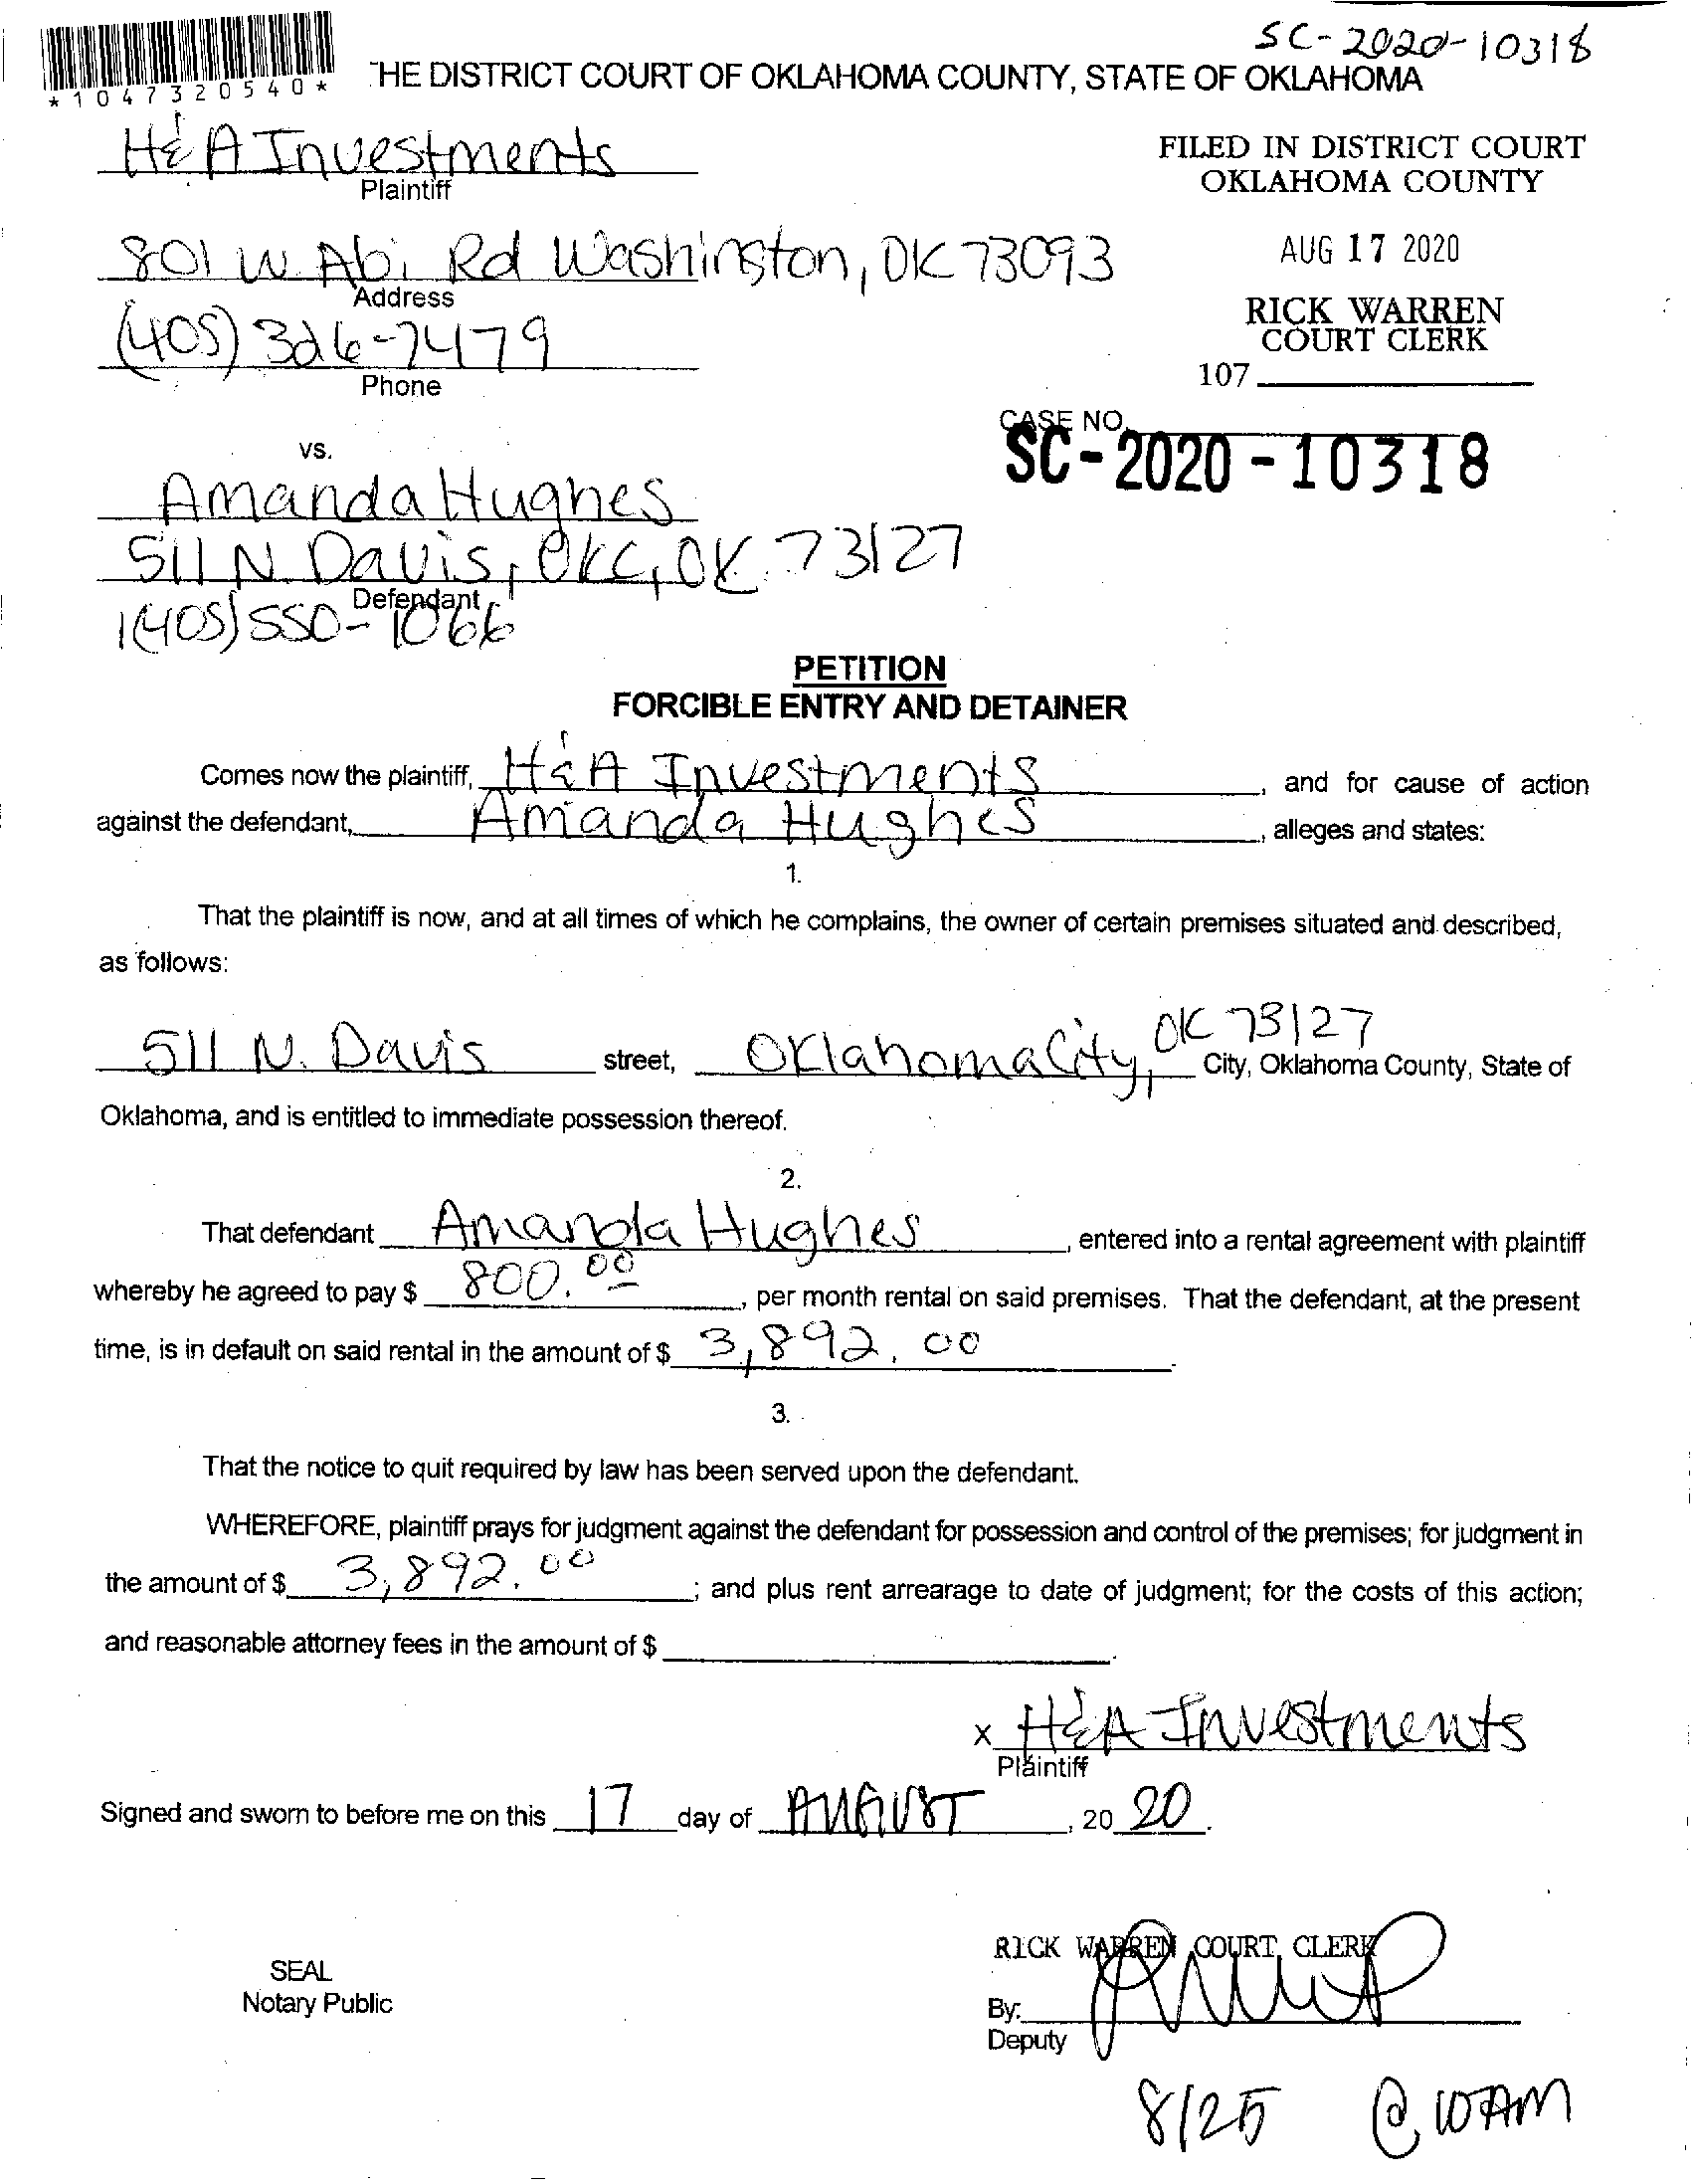 SC-2020-10318
*1047320540*
THE DISTRICT COURT OF OKLAHOMA COUNTY, STATE OF OKLAHOMA
H&A Investments
Plaintiff
FILED IN DISTRICT COURT
OKLAHOMA COUNTY
801 W. Abi Rd Washington, OK 73093
Address
AUG 17 2020
(405) 326-7479
Phone
RICK WARREN
COURT CLERK
107
CASE NO.
SC-2020-10318
vs.
Amanda Hughes
511 N. Davis, OKC, OK 73127
Defendant
1(405) 550-1066
PETITION
FORCIBLE ENTRY AND DETAINER
Comes now the plaintiff, H&A Investments, and for cause of action
against the defendant, Amanda Hughes, alleges and states:
1.
That the plaintiff is now, and at all times of which he complains, the owner of certain premises situated and described,
as follows:
511 N. Davis street, Oklahoma City, OK 73127 City, Oklahoma County, State of
Oklahoma, and is entitled to immediate possession thereof.
2.
That defendant Amanda Hughes, entered into a rental agreement with plaintiff
whereby he agreed to pay $ 800.00, per month rental on said premises. That the defendant, at the present
time, is in default on said rental in the amount of $ 3,892.00.
3.
That the notice to quit required by law has been served upon the defendant.
WHEREFORE, plaintiff prays for judgment against the defendant for possession and control of the premises; for judgment in
the amount of $ 3,892.00; and plus rent arrearage to date of judgment; for the costs of this action;
and reasonable attorney fees in the amount of $
x H&A Investments
Plaintiff
Signed and sworn to before me on this 17 day of AUGUST, 20 20.
RICK WARREN COURT CLERK
SEAL
Notary Public
By:
Deputy
8/25 @ 10AM